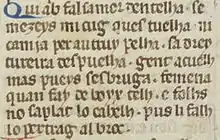 Qui ab fals amor contelha. se
mezeys mi cug ques tuelha. ni
camja per autruy pelha. sa drey
tureira despuelha. gent acuelh
mas pueys ses bruga. femena
quan fay de boyx telh. e falhs
no sap lar lo cabelh. pus li falh
lo pertrag al broc